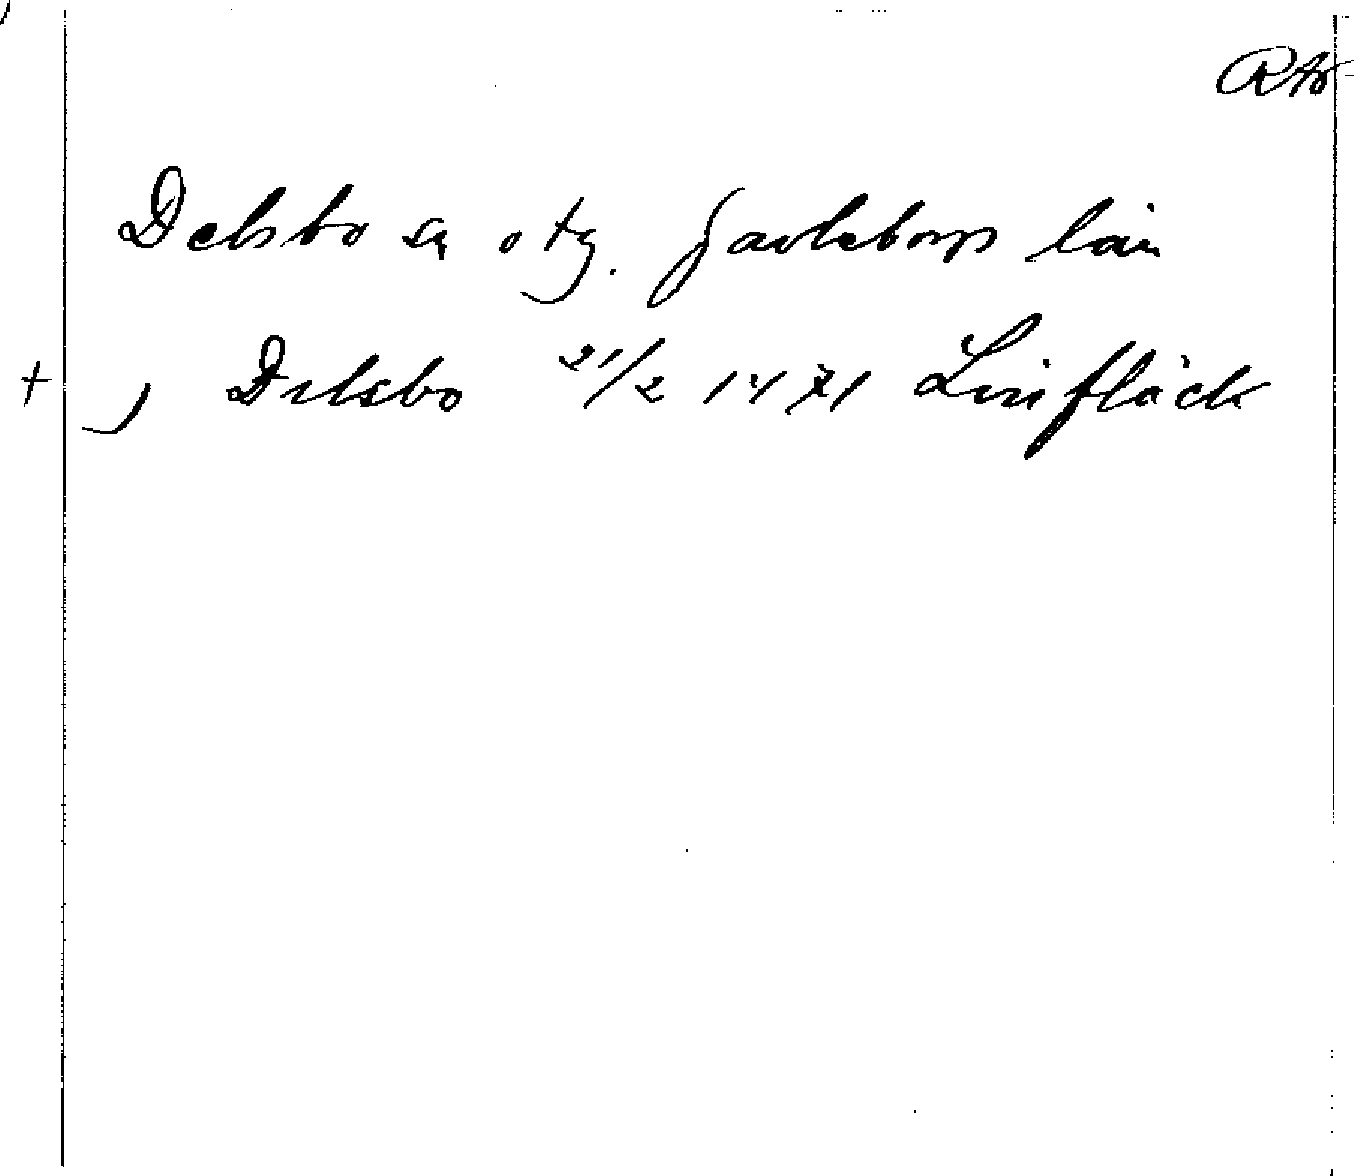 RAÖ
Delsbo sn o tg. Gävleborgs län
+ ) Delsbo 21/2 1471 Linfläck